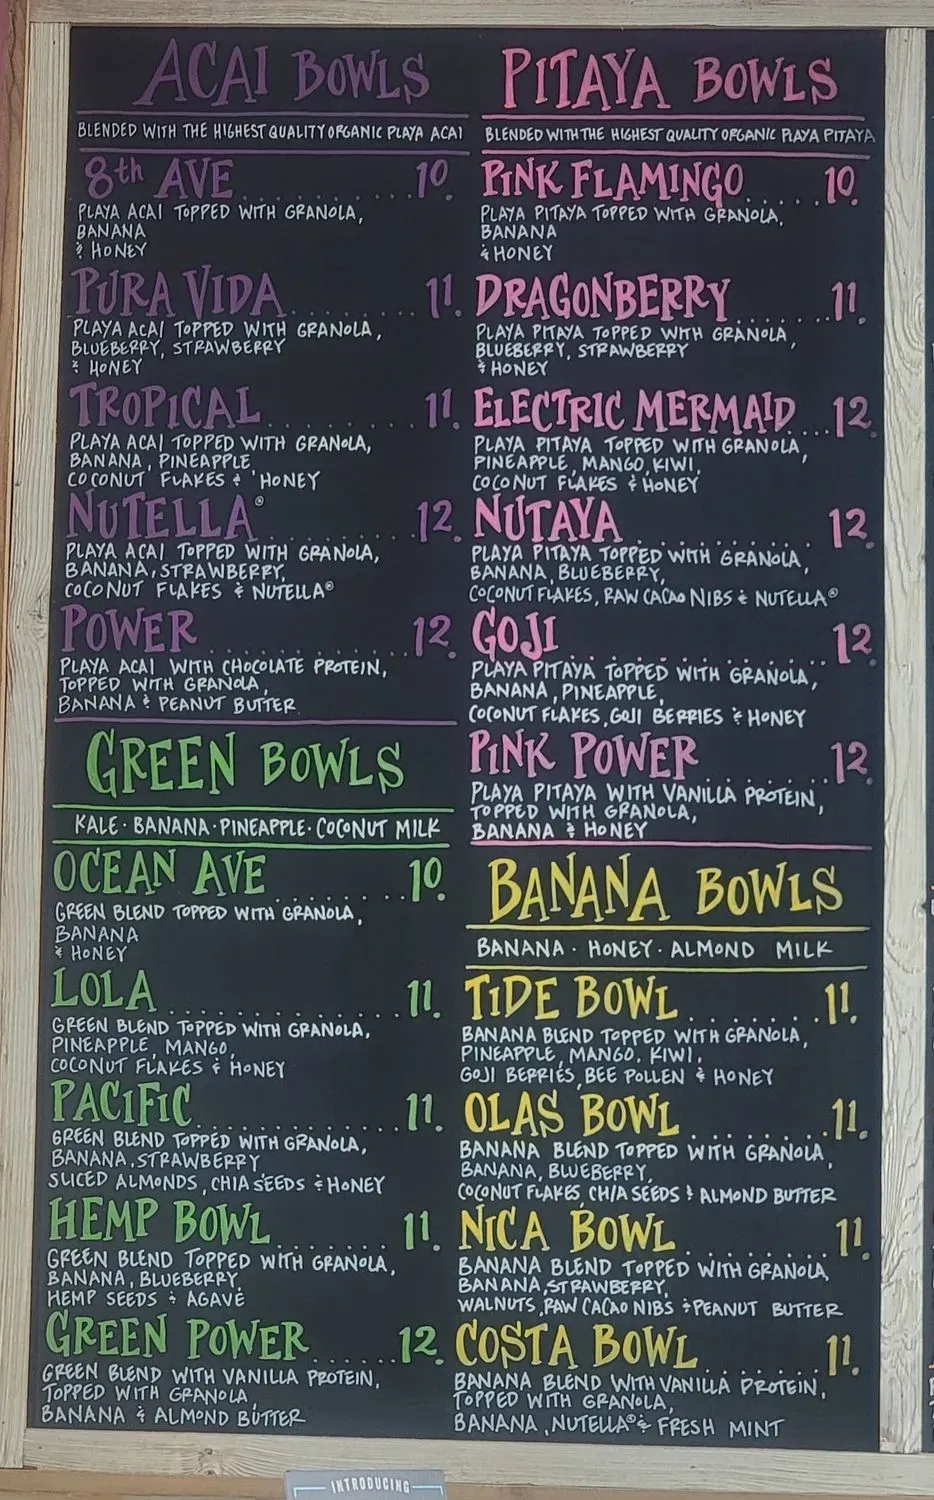 ACAI BOWLS
BLENDED WITH THE HIGHEST QUALITY ORGANIC PLAYA ACAI
8th AVE 10.
PLAYA ACAI TOPPED WITH GRANOLA,
BANANA
& HONEY
PURA VIDA 11.
PLAYA ACAI TOPPED WITH GRANOLA,
BLUEBERRY, STRAWBERRY
& HONEY
TROPICAL 11.
PLAYA ACAI TOPPED WITH GRANOLA,
BANANA, PINEAPPLE,
COCONUT FLAKES & HONEY
NUTELLA® 12.
PLAYA ACAI TOPPED WITH GRANOLA,
BANANA, STRAWBERRY,
COCONUT FLAKES & NUTELLA®
POWER 12.
PLAYA ACAI WITH CHOCOLATE PROTEIN,
TOPPED WITH GRANOLA,
BANANA & PEANUT BUTTER
GREEN BOWLS
KALE · BANANA · PINEAPPLE · COCONUT MILK
OCEAN AVE 10.
GREEN BLEND TOPPED WITH GRANOLA,
BANANA
& HONEY
LOLA 11.
GREEN BLEND TOPPED WITH GRANOLA,
PINEAPPLE, MANGO,
COCONUT FLAKES & HONEY
PACIFIC 11.
GREEN BLEND TOPPED WITH GRANOLA,
BANANA, STRAWBERRY,
SLICED ALMONDS, CHIA SEEDS & HONEY
HEMP BOWL 11.
GREEN BLEND TOPPED WITH GRANOLA,
BANANA, BLUEBERRY,
HEMP SEEDS & AGAVE
GREEN POWER 12.
GREEN BLEND WITH VANILLA PROTEIN,
TOPPED WITH GRANOLA,
BANANA & ALMOND BUTTER
PITAYA BOWLS
BLENDED WITH THE HIGHEST QUALITY ORGANIC PLAYA PITAYA
PINK FLAMINGO 10.
PLAYA PITAYA TOPPED WITH GRANOLA,
BANANA
& HONEY
DRAGONBERRY 11.
PLAYA PITAYA TOPPED WITH GRANOLA,
BLUEBERRY, STRAWBERRY
& HONEY
ELECTRIC MERMAID 12.
PLAYA PITAYA TOPPED WITH GRANOLA,
PINEAPPLE, MANGO, KIWI,
COCONUT FLAKES & HONEY
NUTAYA 12.
PLAYA PITAYA TOPPED WITH GRANOLA,
BANANA, BLUEBERRY,
COCONUT FLAKES, RAW CACAO NIBS & NUTELLA®
GOJI 12.
PLAYA PITAYA TOPPED WITH GRANOLA,
BANANA, PINEAPPLE,
COCONUT FLAKES, GOJI BERRIES & HONEY
PINK POWER 12.
PLAYA PITAYA WITH VANILLA PROTEIN,
TOPPED WITH GRANOLA,
BANANA & HONEY
BANANA BOWLS
BANANA · HONEY · ALMOND MILK
TIDE BOWL 11.
BANANA BLEND TOPPED WITH GRANOLA,
PINEAPPLE, MANGO, KIWI,
GOJI BERRIES, BEE POLLEN & HONEY
OLAS BOWL 11.
BANANA BLEND TOPPED WITH GRANOLA,
BANANA, BLUEBERRY,
COCONUT FLAKES, CHIA SEEDS & ALMOND BUTTER
NICA BOWL 11.
BANANA BLEND TOPPED WITH GRANOLA,
BANANA, STRAWBERRY,
WALNUTS, RAW CACAO NIBS & PEANUT BUTTER
COSTA BOWL 11.
BANANA BLEND WITH VANILLA PROTEIN,
TOPPED WITH GRANOLA,
BANANA, NUTELLA® & FRESH MINT
INTRODUCING